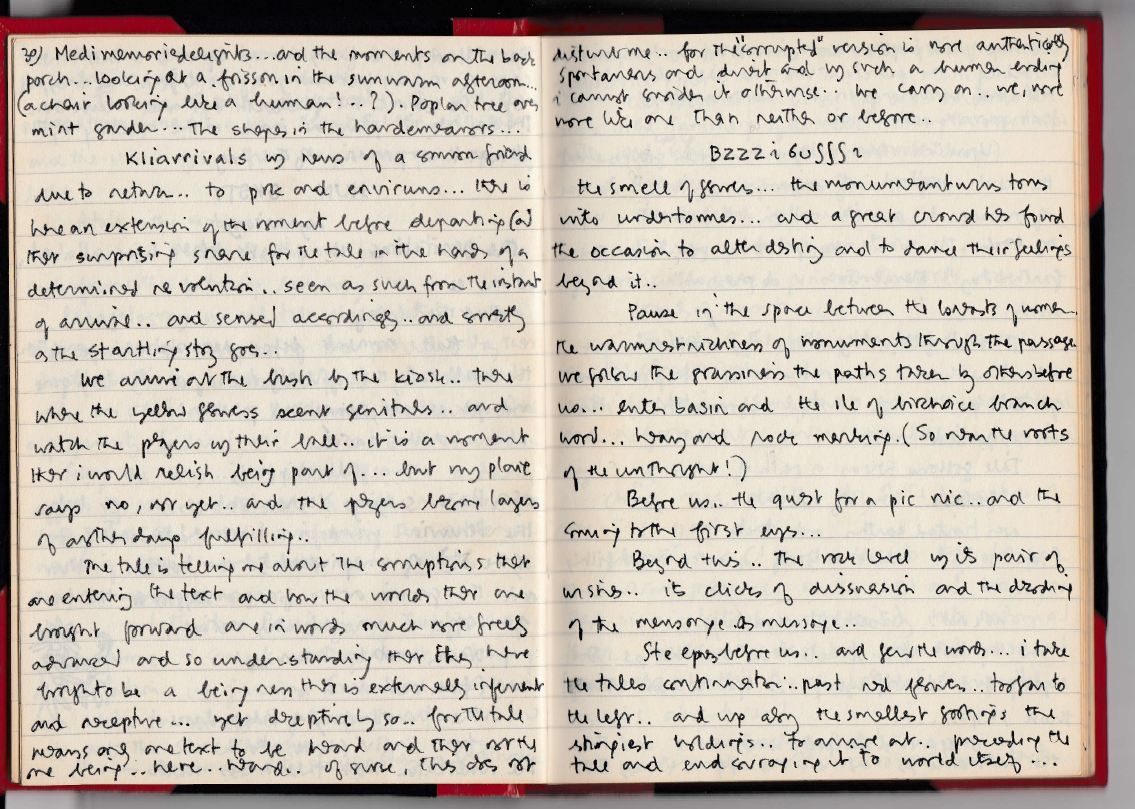 Medimemoriedelights... and the moments on the back
porch... looking at a frisson in the sun warm afternoon...
(a chair looking like a human!..?). Poplar tree over
mint garden... The shapes in the
in news of a common friend
due to return.. to and environs... there is
here an extension of the moment before departing (and
that surprising for the tale in the hands of a
determined revolution.. seen as such from the instant
of arrival.. and sensed accordingly.. and correctly
as the startling story goes...
We arrive at the bush by the kiosk.. there
where the yellow flowers scent genitales.. and
watch the players in their ball.. it is a moment
that i would relish being part of.... but my
says no, not yet.. and the become layers
of another days fulfilling...
The tale is telling me about the corruptions that
are entering the text and how the worlds that are
brought forward are in words much more freely
advanced and so understanding that they have
brought to be a being ness that is externally
and receptive.... yet deceptively so.. for the tale
means one text to be heard and that not the
one being.. here.. heard.. of course, this does not
disturb me.. for the "corrupted" version is more authentically
spontaneous and direct and in such a human ending
i cannot consider it otherwise.. We carry on.. we, more
more like one than neither or before..
BZZZiGUSSSi
the smell of flowers... the turns
into undertones... and a great crowd has found
the occasion to alter destiny and to dance their feelings
beyond it..
Pause in the space between the breasts of women..
the of monuments through the passage
we follow the the paths taken by others before
us... enter basin and the ile of birchoice branch
word... heavy and rock marking. (So near the roots
of the unthought!)
Before us.. the quest for a pic nic.. and the
coming to the first eyes...
Beyond this.. the rock level in its pair of
wishes.. its clicks of dissuasion and the decoding
of the as message...
before us.. and few the words... i take
the tales continuation.. past red flowers.. too far to
the left.. and up along the smallest footings the
holdings.. to arrive at.. preceding the
tale and it to world itself....